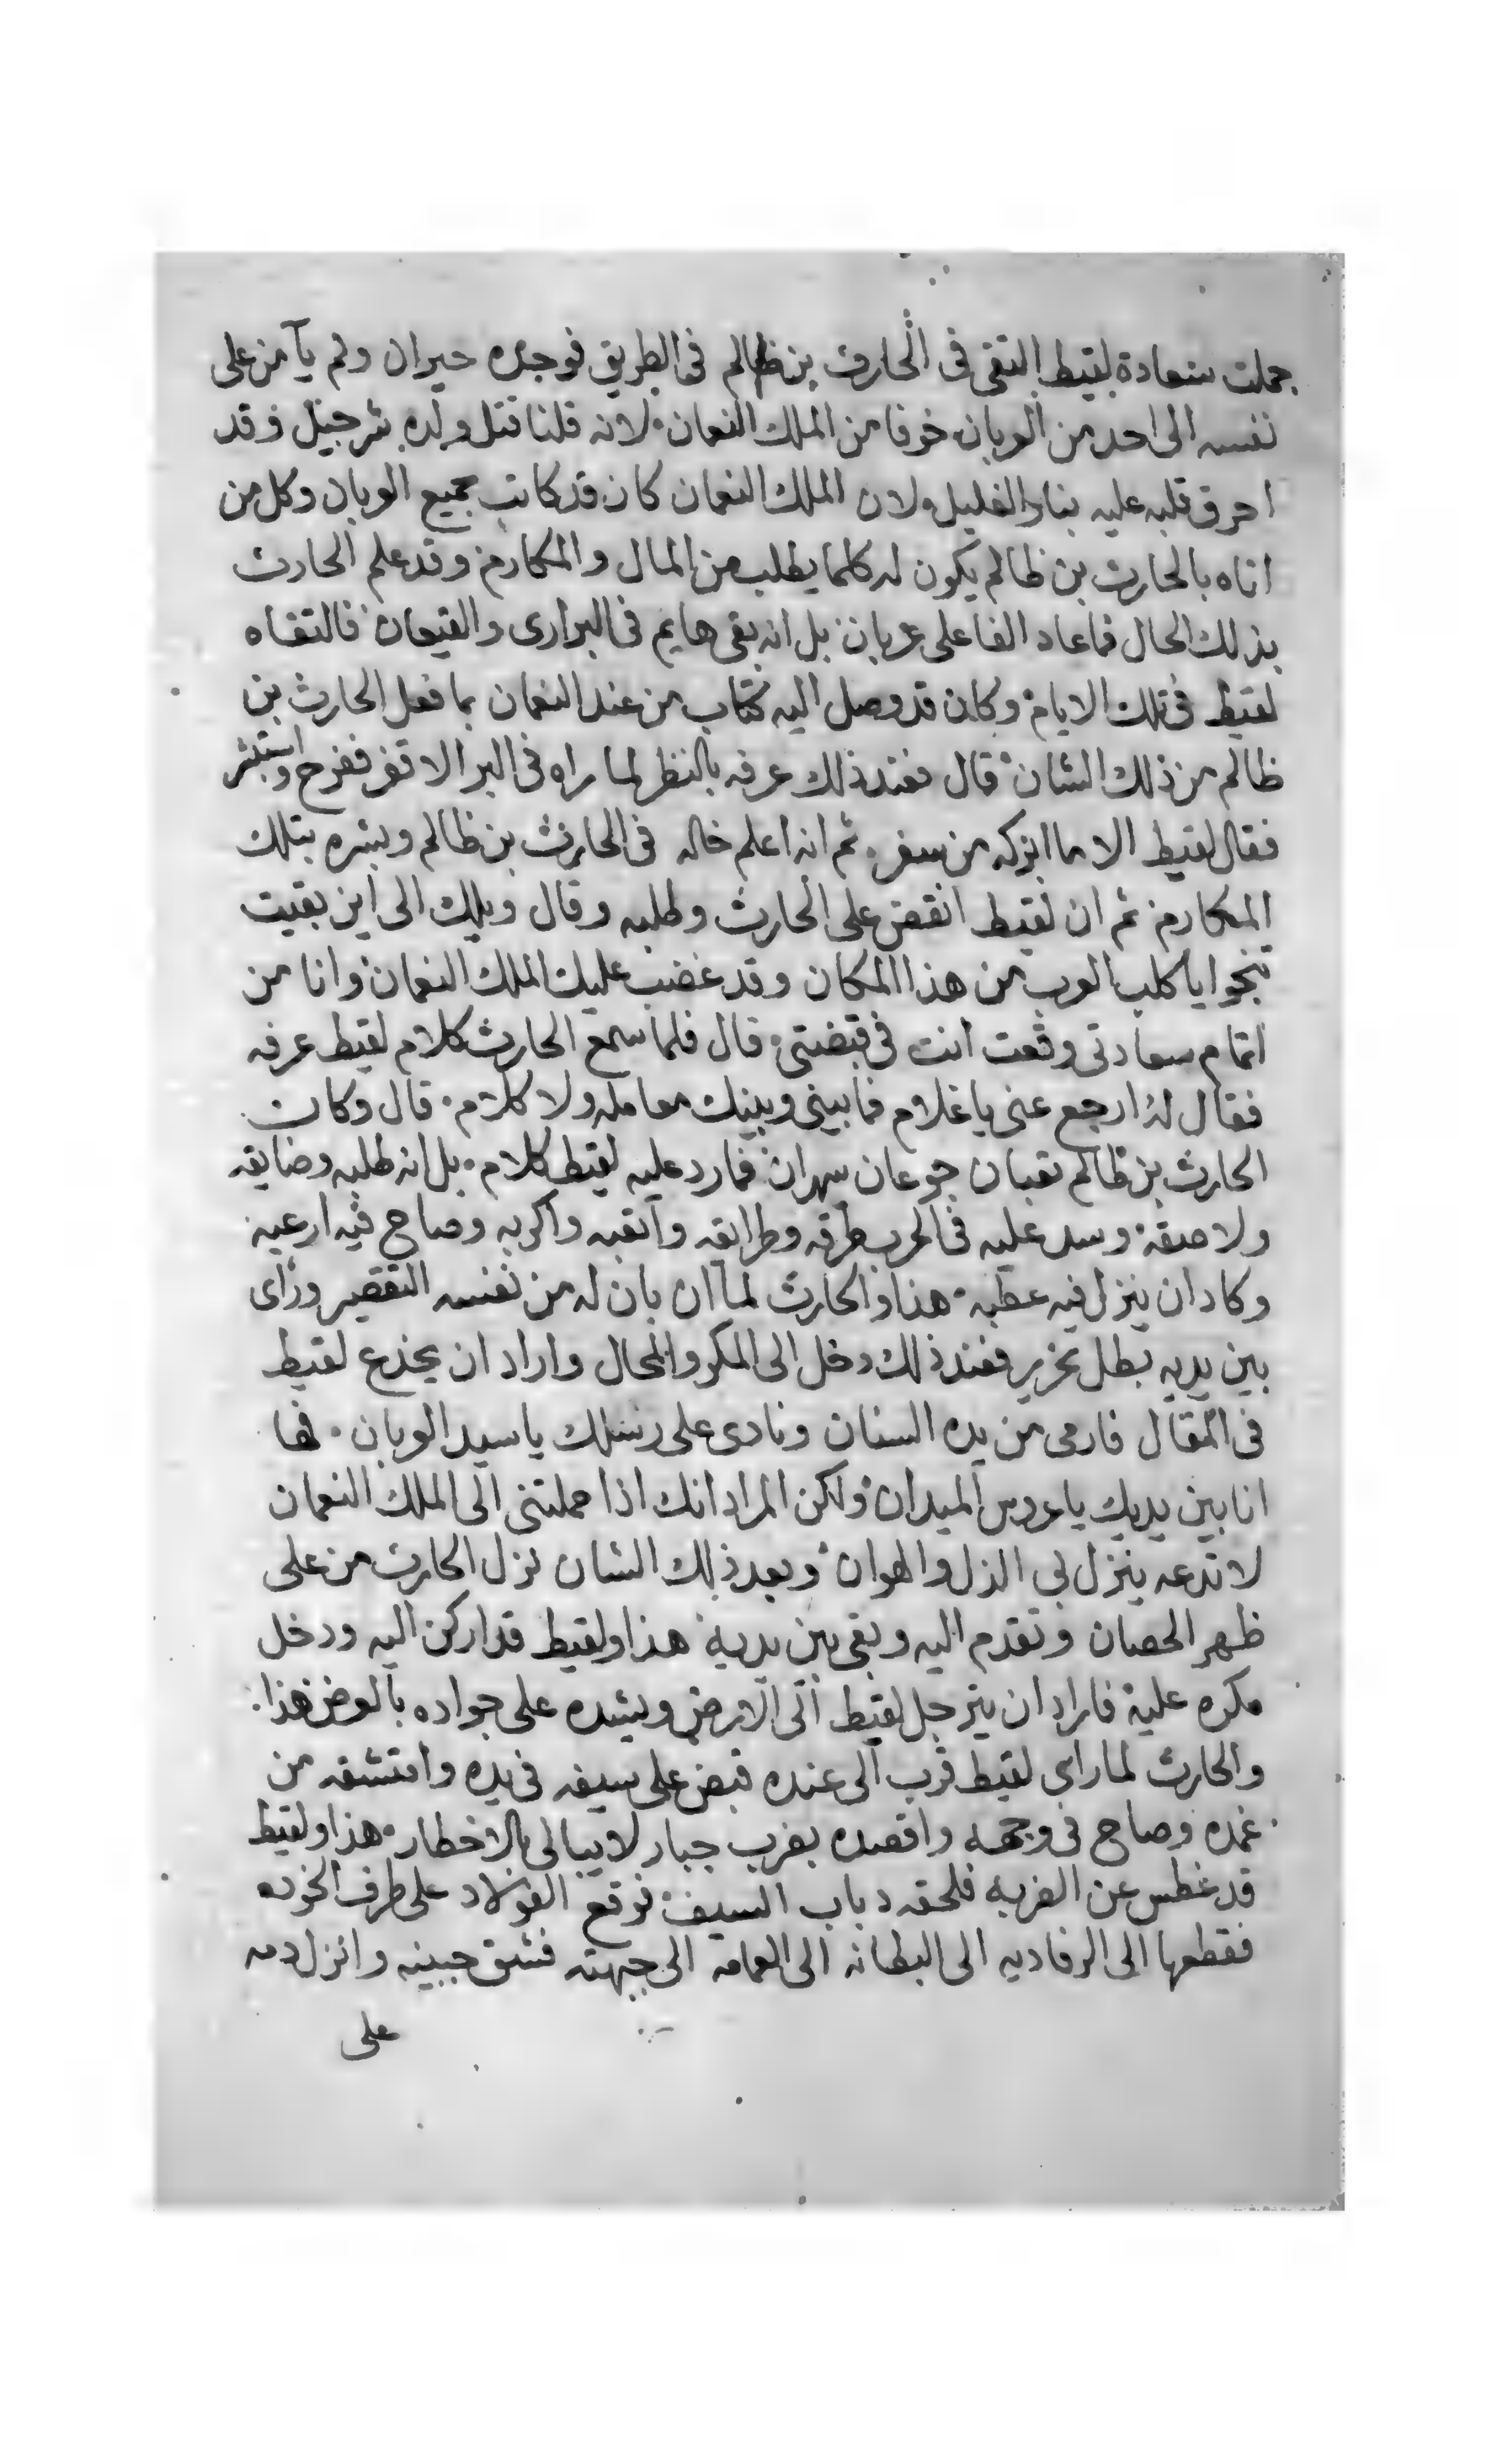 جملت سعادة لقيط التقى فى الحارث بن ظالم فى الطريق فوجده حيران ولم يآمن على
نفسه الى احد من العربان خوفا من الملك النعمان لانه قلنا قتل ولده شرجيل وقد
احرق قلبه عليه بنار الغليل ولان الملك النعمان كان قد كاتب جميع العربان وكل من
اتاه بالحارث بن ظالم يكون له كلما يطلب من المال والمكارم وقد علم الحارث
بذلك الحال فما عاد الفا على عربان بل انه بقى هايم فى البرارى والقيعان فالتقاه
لقيط فى تلك الايام وكان قد وصل اليه كتاب من عند النعمان بما فعل الحارث بن
ظالم من ذلك الشان قال فعند ذلك عرفه بالنظر لما راه فى البر الاقفر ففرح واستبشر
فقال لقيط الا ما ابركه من سفر ثم انه اعلم خاله فى الحارث بن ظالم وبشره بتلك
المكارم ثم ان لقيط انقض على الحارث وطلبه وقال ويلك الى اين بقيت
تنجوا يا كلب العرب من هذا المكان وقد غضب عليك الملك النعمان وانا من
اتمام سعادتى وقعت انت فى قبضتى قال فلما سمع الحارث كلام لقيط عرفه
فقال له ارجع عنى يا غلام فما بينى وبينك معامله ولا كلام قال وكان
الحارث بن ظالم تعبان جوعان سهران فما رد عليه لقيط كلام بل انه طلبه وضايقه
ولاصقه وسد عليه فى الحرب طرقه وطرايقه واتعبه واكربه وصاح فيه ارعبه
وكاد ان ينزل فيه عطبه هذا والحارث لما ان بان له من نفسه التقصير وراى
بين يديه بطل نحرير فعند ذلك دخل الى المكر والمحال واراد ان يخدع لقيط
فى المقال فارمى من يده السنان ونادى على رسلك يا سيد العربان فها
انا بين يديك يا عروس الميدان ولكن المراد انك اذا حملتنى الى الملك النعمان
لا تدعه ينزل بى الذل والهوان وبعد ذلك الشان نزل الحارث من على
ظهر الحصان وتقدم اليه وبقى بين يديه هذا ولقيط قد اركن اليه ودخل
مكره عليه فاراد ان يترجل لقيط الى الارض ويشده على جواده بالعرض هذا
والحارث لما راى لقيط قرب الى عنده قبض على سيفه فى يده وامتشقه من
غمده وصاح فى وجهه واقصده بضرب جبار لا يبالى بالاخطار هذا ولقيط
قد غطس عن الضربه فلحقه دباب السيف فوقع الفولاد على طرف الخوده
فقطعها الى الرفاديه الى البطانه الى العمامه الى جبهته فشق جبينه وانزل دمه
على